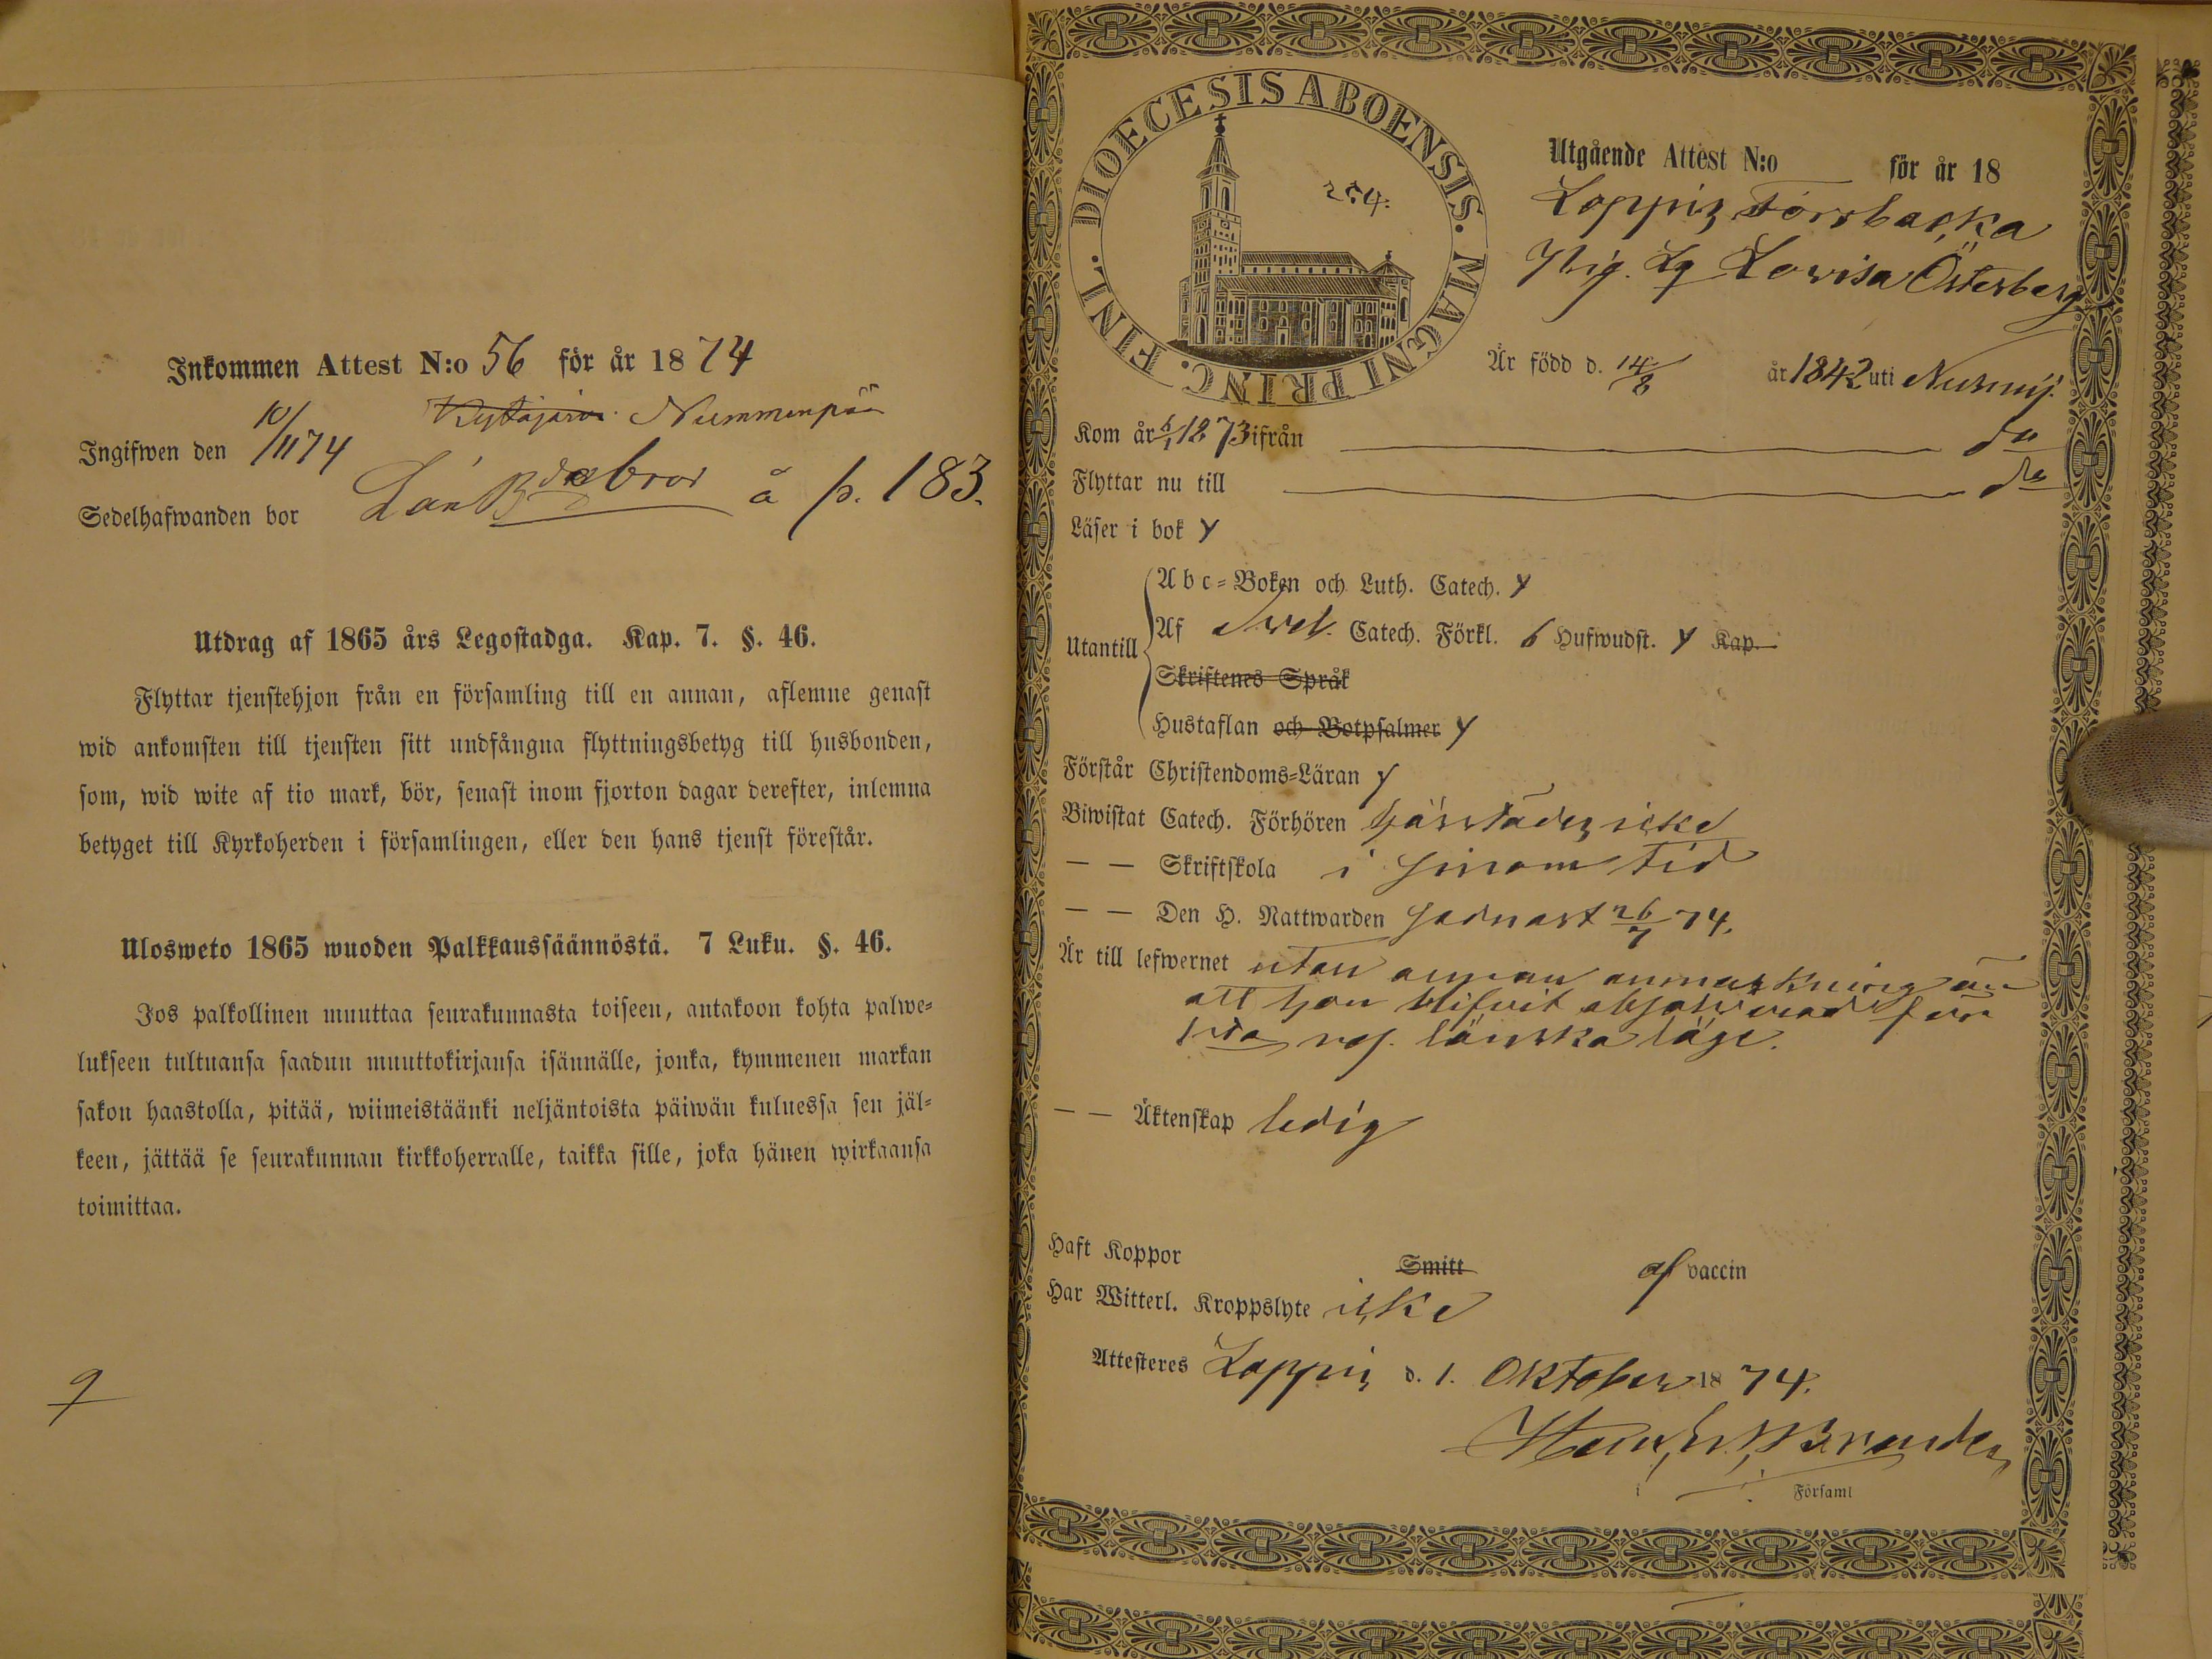 Inkommen Attest N:o 56 för år 1874
Kytäjärvi Nummenpää
Ingifwen den 10/11 74
Sedelhafwanden bor å p. 183.
Utdrag af 1865 års Legostadga. Kap. 7. §. 46.
Flyttar tjenstehjon från en församling till en annan, aflemne genast
wid ankomsten till tjensten sitt undfångna flyttningsbetyg till husbonden,
som, wid wite af tio mark, bör, senast inom fjorton dagar derefter, inlemna
betyget till Kyrkoherden i församlingen, eller den hans tjenst förestår.
Ulosweto 1865 wuoden Palkkaussäännöstä. 7 Luku. §. 46.
Jos palkollinen muuttaa seurakunnasta toiseen, antakoon kohta palwe-
lukseen tultuansa saadun muuttokirjansa isännälle, jonka, kymmenen markan
sakon haastolla, pitää, wiimeistäänki neljäntoista päiwän kuluessa sen jäl-
keen, jättää se seurakunnan kirkkoherralle, taikka sille, joka hänen wirkaansa
toimittaa.
9
DIOECESIS ABOENSIS. MAGNI PRINC. FINL.
254.
Utgående Attest N:o för år 18
Loppis Forsbacka
Pig. Lg Lovisa Österberg
Är född d. 14/8 år 1842 uti Nurmij.
Kom år 5/1 1873 ifrån do
Flyttar nu till do
Läser i bok y
Utantill
Abc-Boken och Luth. Catech. y
Af Svel. Catech. Förkl. 6 Hufwudst. y Kap.
Skriftenes Språk
Hustaflan och Botpsalmer y
Förstår Christendoms-Läran y
Biwistat Catech. Förhören härstädes icke
— — Skriftskola i sinom tid
— — Den H. Nattwarden sednast 26/7 74.
Är till lefwernet utan annan anmärkning än
att hon blifvit absolverad för
1sta res. lönska läge.
— — Äktenskap ledig
Haft Koppor Smitt af vaccin
Har Witterl. Kroppslyte icke
Attesteres Loppis d. 1. Oktober 1874.
i Församl